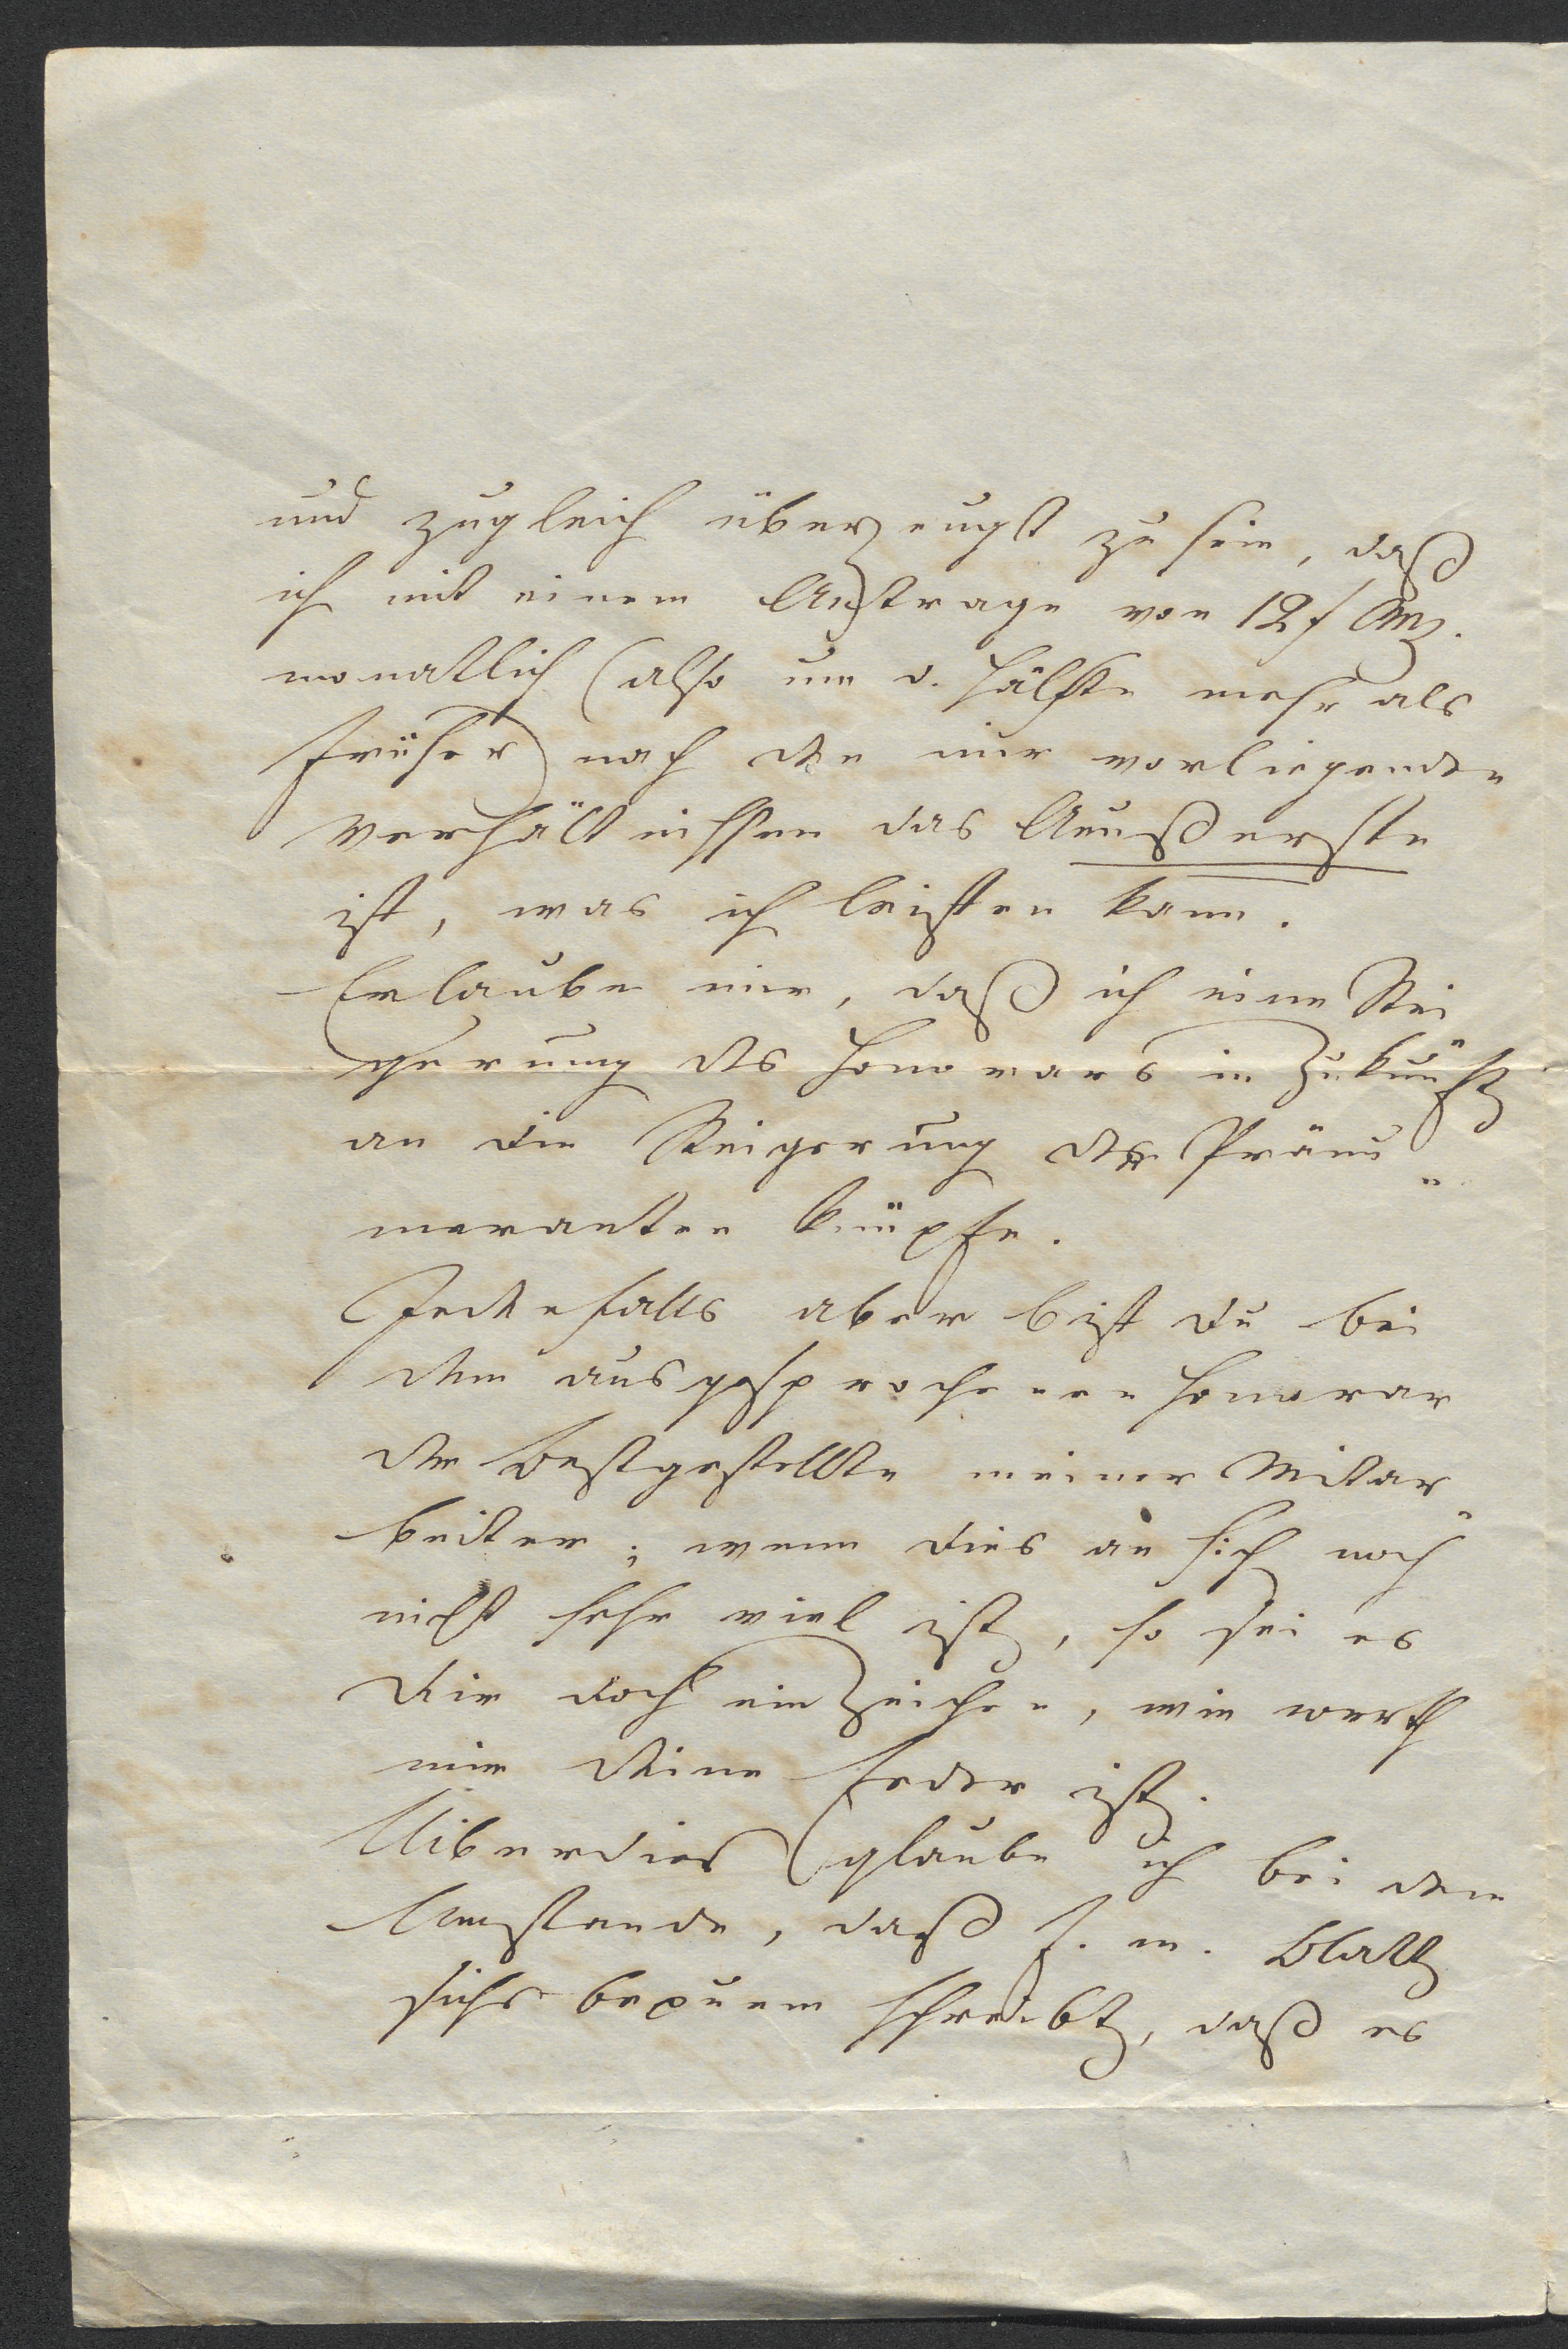 und zugleich überzeugt zu sein, daß
ich mit einem Antrage von 12 f CMz.
monatlich (also um d. Hälfte mehr als
früher) nach den mir vorliegenden
Verhältnissen das Aeußerste
ist, was ich leisten kann.
Erlaube mir, daß ich eine Stei
gerung des Honorars in Zukunft
an die Steigerung der Pränu
meranten knüpfe.
Jedenfalls aber bist Du bei
dem ausgesprochenen Honorar
der Bestgestellte meiner Mitar
beiter; wenn dies an sich noch
nicht sehr viel ist, so sei es
Dir doch ein Zeichen, wie werth
mir Deine Feder ist.
Uiberdies glaube ich bei dem
Umstande, daß f. m. Blatt
sichs bequem schreibt, daß es